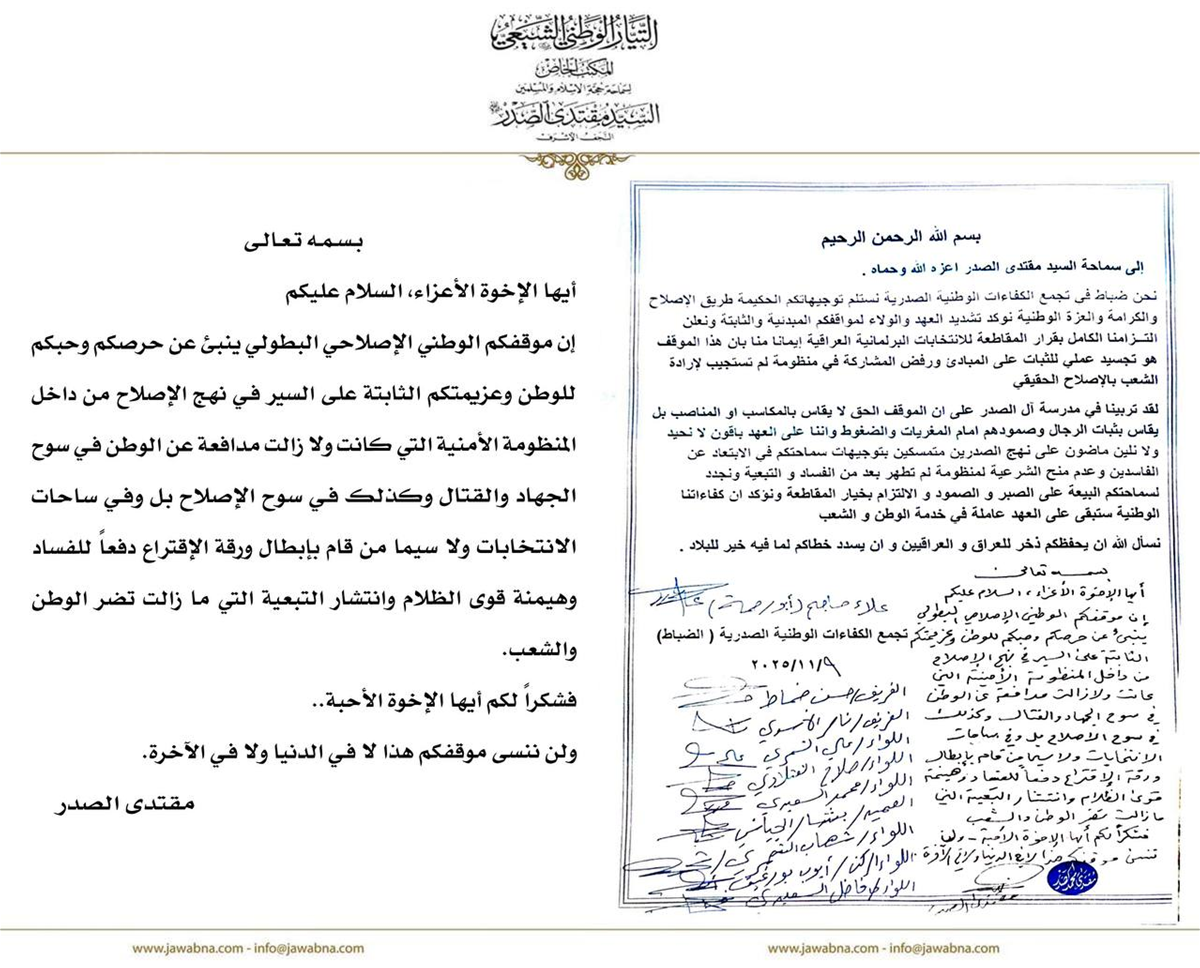 التيار الوطني الشيعي
المكتب الخاص
لسماحة حجة الإسلام والمسلمين
السيد مقتدى الصدر
النجف الأشرف
بسم الله الرحمن الرحيم
إلى سماحة السيد مقتدى الصدر اعزه الله وحماه .
نحن ضباط في تجمع الكفاءات الوطنية الصدرية نستلم توجيهاتكم الحكيمة طريق الإصلاح
والكرامة والعزة الوطنية نوكد تشديد العهد والولاء لمواقفكم المبدئية والثابتة ونعلن
التزامنا الكامل بقرار المقاطعة للانتخابات البرلمانية العراقية إيمانا منا بان هذا الموقف
هو تجسيد عملي للثبات على المبادئ ورفض المشاركة في منظومة لم تستجيب لإرادة
الشعب بالإصلاح الحقيقي
لقد تربينا في مدرسة آل الصدر على ان الموقف الحق لا يقاس بالمكاسب او المناصب بل
يقاس بثبات الرجال وصمودهم امام المغريات والضغوط واننا على العهد باقون لا نحيد
ولا نلين ماضون على نهج الصدرين متمسكين بتوجيهات سماحتكم في الابتعاد عن
الفاسدين وعدم منح الشرعية لمنظومة لم تطهر بعد من الفساد و التبعية ونجدد
لسماحتكم البيعة على الصبر و الصمود و الالتزام بخيار المقاطعة ونؤكد ان كفاءاتنا
الوطنية ستبقى على العهد عاملة في خدمة الوطن و الشعب
نسأل الله ان يحفظكم ذخر للعراق و العراقيين و ان يسدد خطاكم لما فيه خير للبلاد .
بسمه تعالى
أيها الإخوة الأعزاء، السلام عليكم
إن موقفكم الوطني الإصلاحي البطولي
ينبئ عن حرصكم وحبكم للوطن وعزيمتكم
الثابتة على السير في نهج الإصلاح
من داخل المنظومة الأمنية التي
كانت ولازالت مدافعة عن الوطن
في سوح الجهاد والقتال وكذلك
في سوح الإصلاح بل وفي ساحات
الانتخابات ولا سيما من قام بإبطال
ورقة الإقتراع دفعاً للفساد وهيمنة
قوى الظلام وانتشار التبعية التي
ما زالت تضر الوطن والشعب
فشكراً لكم أيها الإخوة الأحبة - ولن
ننسى موقفكم هذا لا في الدنيا ولا في الآخرة
مقتدى الصدر
(أبو رحمة)
تجمع الكفاءات الوطنية الصدرية ( الضباط)
٢٠٢٥/١١/٩
الفريق/حسن
الفريق/
اللواء/علي
اللواء/صلاح
اللواء/محمد السعيدي
العميد/
اللواء/شهاب
اللواء الركن/أيوب
اللواء/فاضل السعيدي
بسمه تعالى
أيها الإخوة الأعزاء، السلام عليكم
إن موقفكم الوطني الإصلاحي البطولي ينبئ عن حرصكم وحبكم
للوطن وعزيمتكم الثابتة على السير في نهج الإصلاح من داخل
المنظومة الأمنية التي كانت ولا زالت مدافعة عن الوطن في سوح
الجهاد والقتال وكذلك في سوح الإصلاح بل وفي ساحات
الانتخابات ولا سيما من قام بإبطال ورقة الإقتراع دفعاً للفساد
وهيمنة قوى الظلام وانتشار التبعية التي ما زالت تضر الوطن
والشعب.
فشكراً لكم أيها الإخوة الأحبة..
ولن ننسى موقفكم هذا لا في الدنيا ولا في الآخرة.
مقتدى الصدر
www.jawabna.com - info@jawabna.com
www.jawabna.com - info@jawabna.com